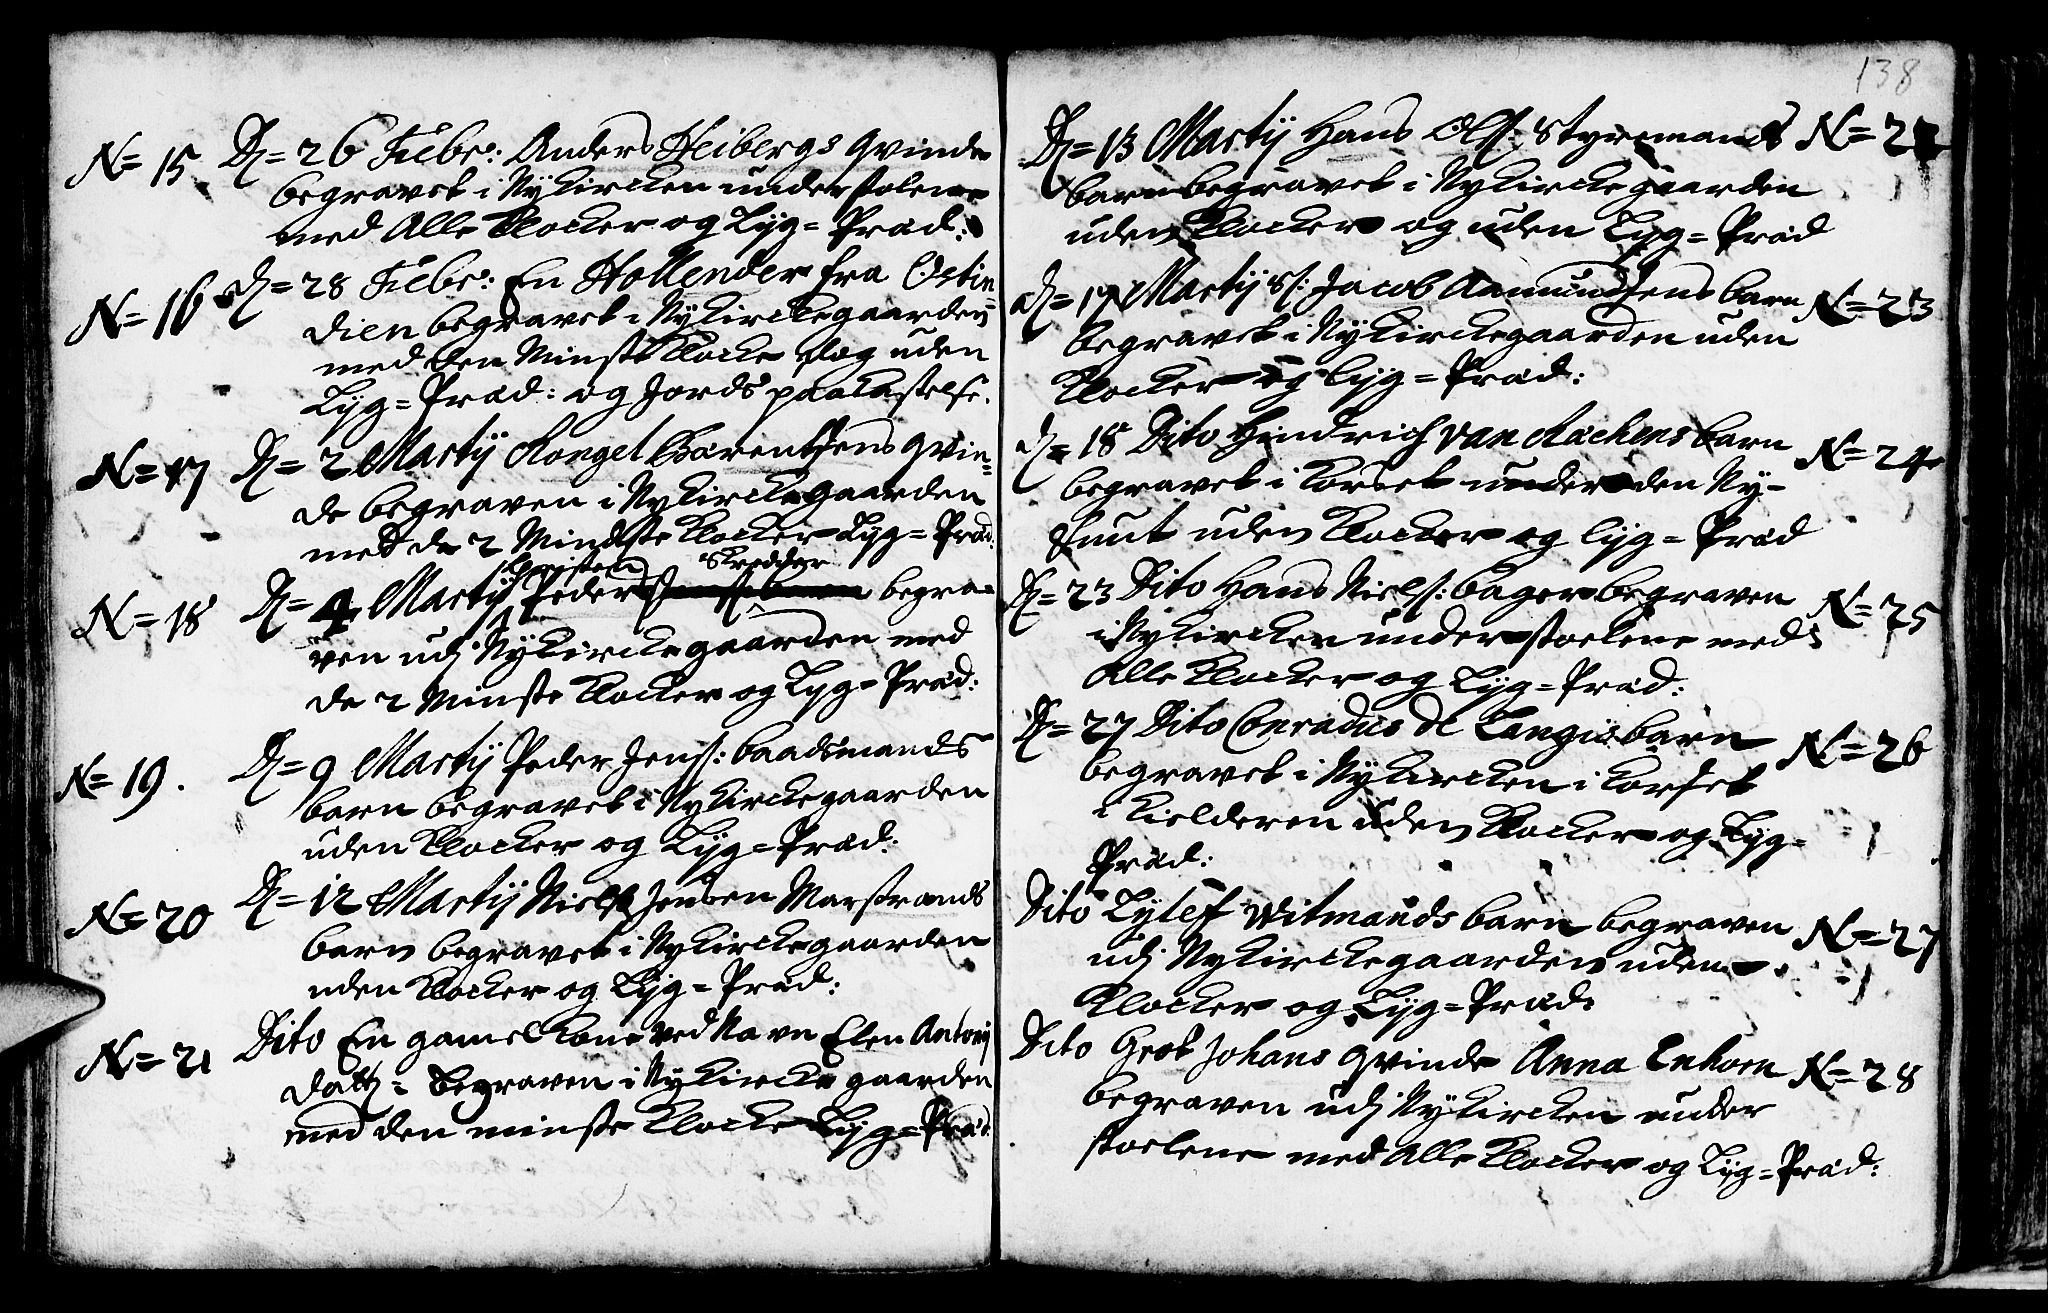 N= 15 D= 26 Febr: Anders Heibergs qvinde
begravet i Nykircken under stolene
med Alle Klocker og Lyg= Præd:
N= 16 D= 28 Febr: En Hollender fra Ostin=
dien begravet i Nykirckegaarden
med den Minste Klocke slog uden
Lyg= Præd: og Jords paakastelse.
N= 17 D= 2 Martij Rongel Barentsens qvin=
de begraven i Nykirckegaarden
med de 2 Mindste Klocker Lyg= Præd:
Christen Skredder
N= 18 D= 4 Martij Peders begra=
ven udj Nykirckegaarden med
de 2 Minste Klocker og Lyg= Præd:
N= 19. D= 9 Martij Peder Jens: baadsmands
barn begravet i Nykirckegaarden
uden Klocker og Lyg= Præd:
N= 20 D= 12 Martij Niels Jensen Marstrands
barn begravet i Nykirckegaarden
uden Klocker og Lyg= Præd:
N= 21 Dito En gamel Kone ved Navn Elen Antonij
datt= begraven i Nykircke gaarden
med den minste Klocke Lyg= Præd:
138
D= 13 Martij Hans Ols: Styremands N= 22
barn begravet i Nykirckegaarden
uden Klocker og uden Lyg= Præd
D= 17 Martij Sl: Jacob Aamundsens barn N= 23
begravet i Nykirckegaarden uden
Klocker og lyg= Præd:
D= 18 Dito Hindrich van Aachens barn N= 24
begravet i Korset under den Ny=
uden Klocker og lyg= Præd
D= 23 Dito Hans Niels: bager begraven N= 25
i Nykircken under stoelene med
Alle Klocker og Lyg= Præd:
D= 27 Dito Conradus de Langis barn N= 26
begravet i Nykircken i Korset
i Kielderen uden Klocker og Lyg=
Præd:
Dito Lyleff Witmands barn begraven N= 27
udj Nykirckegaarden uden
Klocker og Lyg= Præd:
Dito Grot Johans qvinde Anna Enhorn N= 28
begraven udj Nykircken under
stoelene med Alle Klocker og Lyg= Præd: